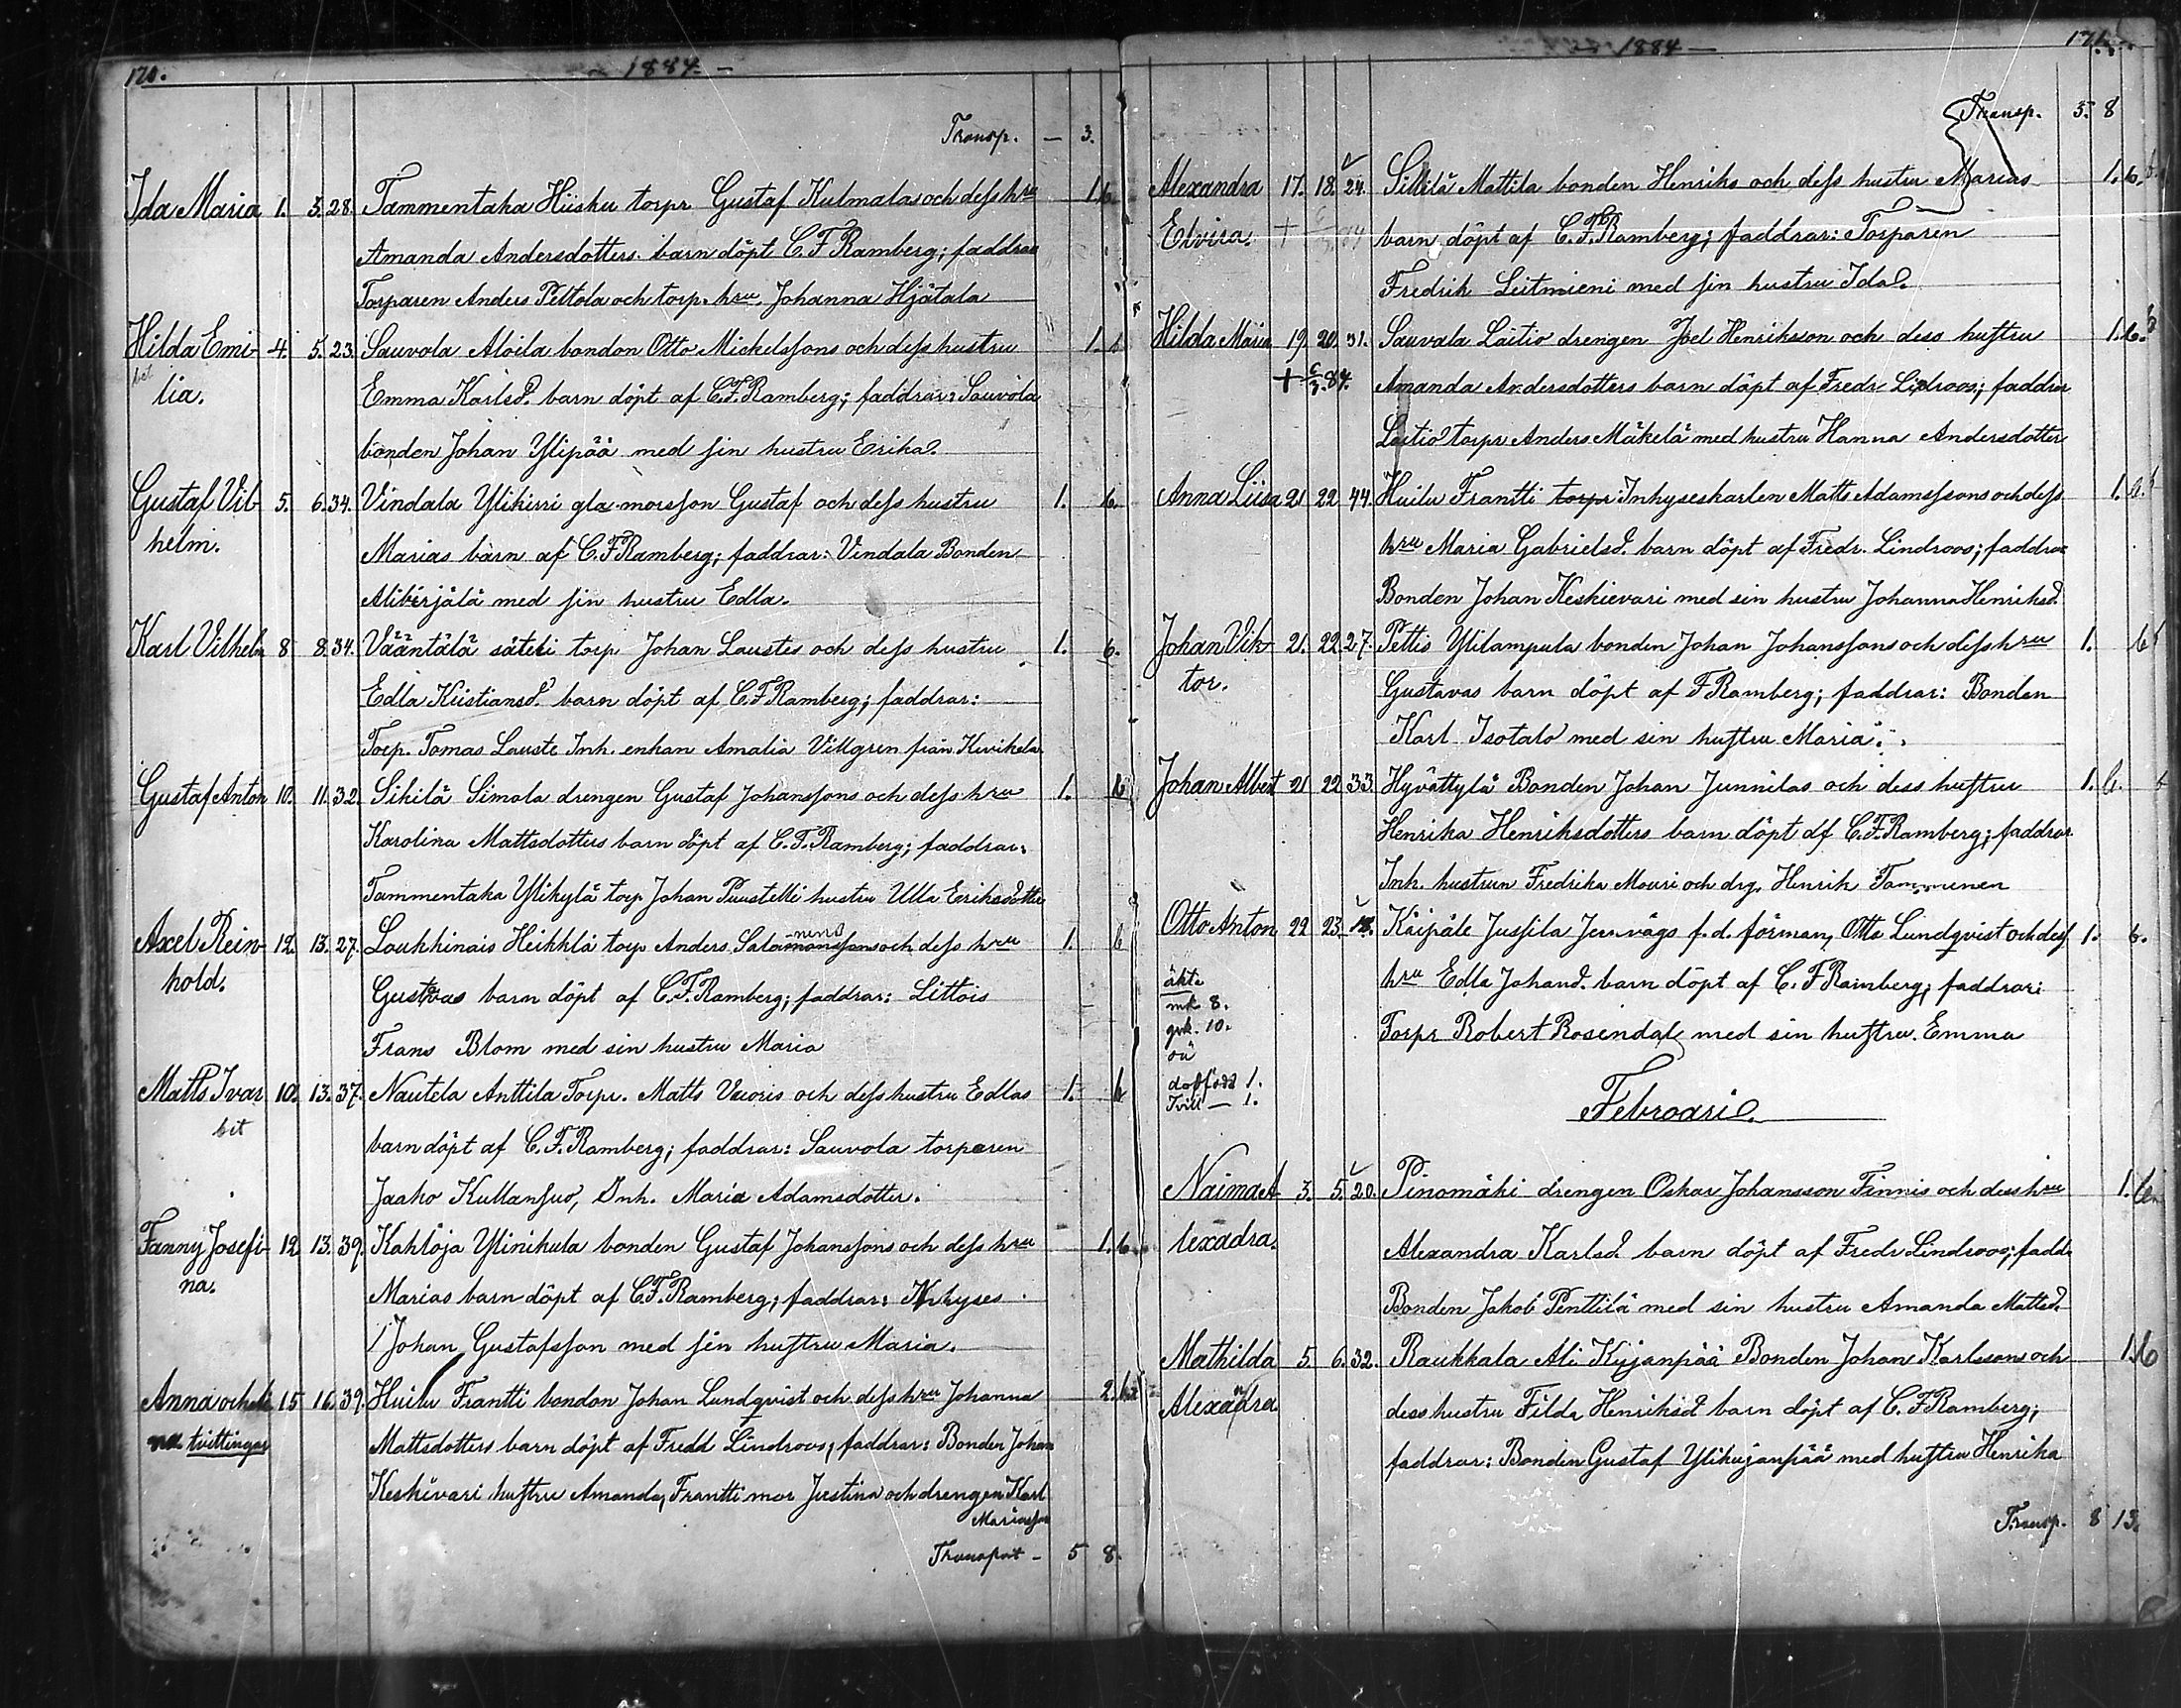 170. - 1884 -
Transp. - 3.
Ida Maria 1. 3. 28. Tammentaka Hüsku torpr Gustaf Kulmalas och dess hru 1. b.
Amanda Andersdotters barn döpt C. F. Ramberg; faddrar
Torparen Anders Peltola och torp. hru Johanna Hjätala
Hilda Emi- 4. 5. 23. Sauvola Aloila bonden Otto Mickelssons och dess hustru 1.
lia. Emma Karlsd. barn döpt af C. F. Ramberg; faddrar: Sauvola
bonden Johan Ylipää med sin hustru Erika.
Gustaf Vil- 5. 6. 34. Vindala Ylikirri gla morsson Gustaf och dess hustru 1. b.
helm. Marias barn af C. F. Ramberg; faddrar: Vindala Bonden
Alikirjälä med sin hustru Edla.
Karl Vilhelm 8 8. 34. Vääntälä säteri torp Johan Laustes och dess hustru 1. 6.
Edla Kristiansd. barn döpt af C. F. Ramberg; faddrar:
Torp. Tomas Lauste Inh. enkan Amalia Villgren från Kivikela
Gustaf Anton 10. 11. 32. Sikilä Simola drengen Gustaf Johanssons och dess hru 1. b
Karolina Mattsdotters barn döpt af C. F. Ramberg; faddrar:
Tammentaka Ylikylä torp Johan Puustelli hustru Ulla Eriksdotter
Axel Rein- 12. 13. 27. Loukkinais Heikkilä torp Anders Salamonssons och dess hru 1. b
hold. Gustavas barn döpt af C. F. Ramberg; faddrar: Littois
Frans Blom med sin hustru Maria
Matts Ivar 10. 13. 37. Nautela Anttila Torpr. Matts Vuoris och dess hustru Edlas 1. b
bet barn döpt af C. F. Ramberg; faddrar: Sauvola torparen
Jaako Kullansuo, Inh. Maria Adamsdotter.
Fanny Josefi- 12 13. 39. Kahloja Ylinikula bonden Gustaf Johanssons och dess hru 1. b
na. Marias barn döpt af C. F. Ramberg; faddrar: Inhyses
Johan Gustafsson med sin hustru Maria.
Anna och 15 16. 39. Huilu Frantti bondon Johan Lundqvist och dess hru Johanna 2.
na tvillingar Mattsdotters barn döpt af Fredd Lindroos; faddrar: Bonden Johan
Keskivari hustru Amanda, Frantti mor Justina och drengen Karl
Mariasson
Transport - 5 8.
- 1884 - 171.
Transp. 5 8
Alexandra 17. 18. 24. Sillilä Mattila bonden Henriks och dess hustru Marias 1. b.
Elvira. + barn döpt af C. F. Ramberg; faddrar: Torparen
Fredrik Leitmieni med sin hustru Ida.
Hilda Maria 19. 20. 31. Sauvala Laitio drengen Joel Henriksson och dess hustru 1. b.
+ 6/3. 84. Amanda Andersdotters barn döpt af Fredr Lindroos; faddrar
Laitio torpr Anders Mäkelä med hustru Hanna Andersdotter
Anna Liisa 21 22 44. Huilu Frantti torpr Inhyseskarlen Matts Adamssons och dess 1.
hru Maria Gabrielsd. barn döpt af Fredr. Lindroos; faddrar
Bonden Johan Keskievari med sin hustru Johanna Henriksd.
Johan Vik- 21. 22. 27. Pettis Ylilampula bonden Johan Johanssons och dess hru 1. b
tor. Gustavas barn döpt af F Ramberg; faddrar: Bonden
Karl Isotalo med sin hustru Maria.
Johan Albert 21 22 33. Hyvättylä Bonden Johan Junnilas och dess hustru 1. b.
Henrika Henriksdotters barn döpt af C. F. Ramberg; faddrar
Inh. hustrun Fredrika Mouri och drg. Henrik Tamminen
Otto Anton 22 23. Käipäle Jussila Jernvägs f. d. förman, Otto Lundqvist och dess 1. b.
äkta hru Edla Johansd. barn döpt af C. F Ramberg; faddrar:
mk 8.
qvk. 10. Torpr Robert Rosendal med sin hustru Emma
oä
dödfödd 1.
Tvill - 1.
Februari.
Naima A 3. 5. 20. Pinomäki drengen Oskar Johansson Finnis och dess hru 1.
lexadra. Alexandra Karlsd. barn döpt af Fredr Lindroos; fadd.
Bonden Jakob Penttilä med sin hustru Amanda Mattsd.
Mathilda 5. 6. 32. Raukkala Ali Kujanpää Bonden Johan Karlssons och 1. b
Alexandra dess hustru Filda Henriksd barn döpt af C. F Ramberg;
faddrar: Bonden Gustaf Ylikujanpää med hustru Henrika
Transp. 8 13.